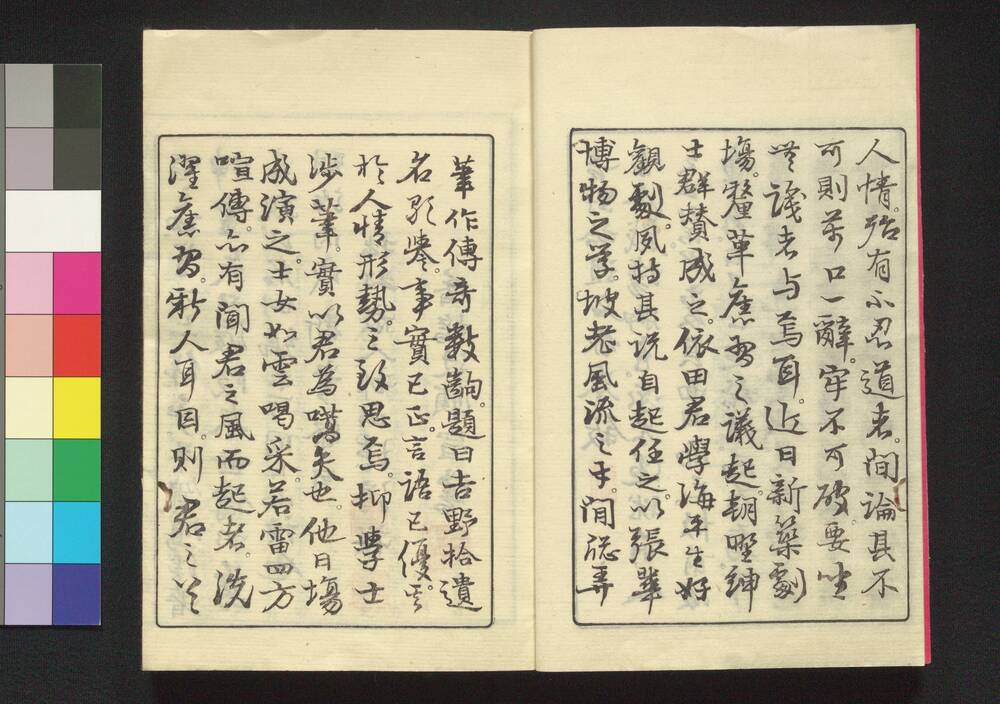 人情。殆有不忍道者。間論其不
可則萬口一辭。牢不可破。要坐
無識者与焉耳。近日新築劇
場。釐革舊習之議起。朝野紳
士群賛成之。依田君學海平生好
觀劇。夙持其説自起任之。以張華
博物之学。坡老風流之才。間弄
筆作傳奇數齣。題曰吉野拾遺
名歌誉。事實已正。言語已優。其
於人情形勢。三致思焉。抑學士
渉筆。實以君為嚆矢也。他日塲
成演之。士女如雲喝采。若雷四方
喧傳。亦有聞君之風而起者。洗
濯舊習。新人耳目。則君之